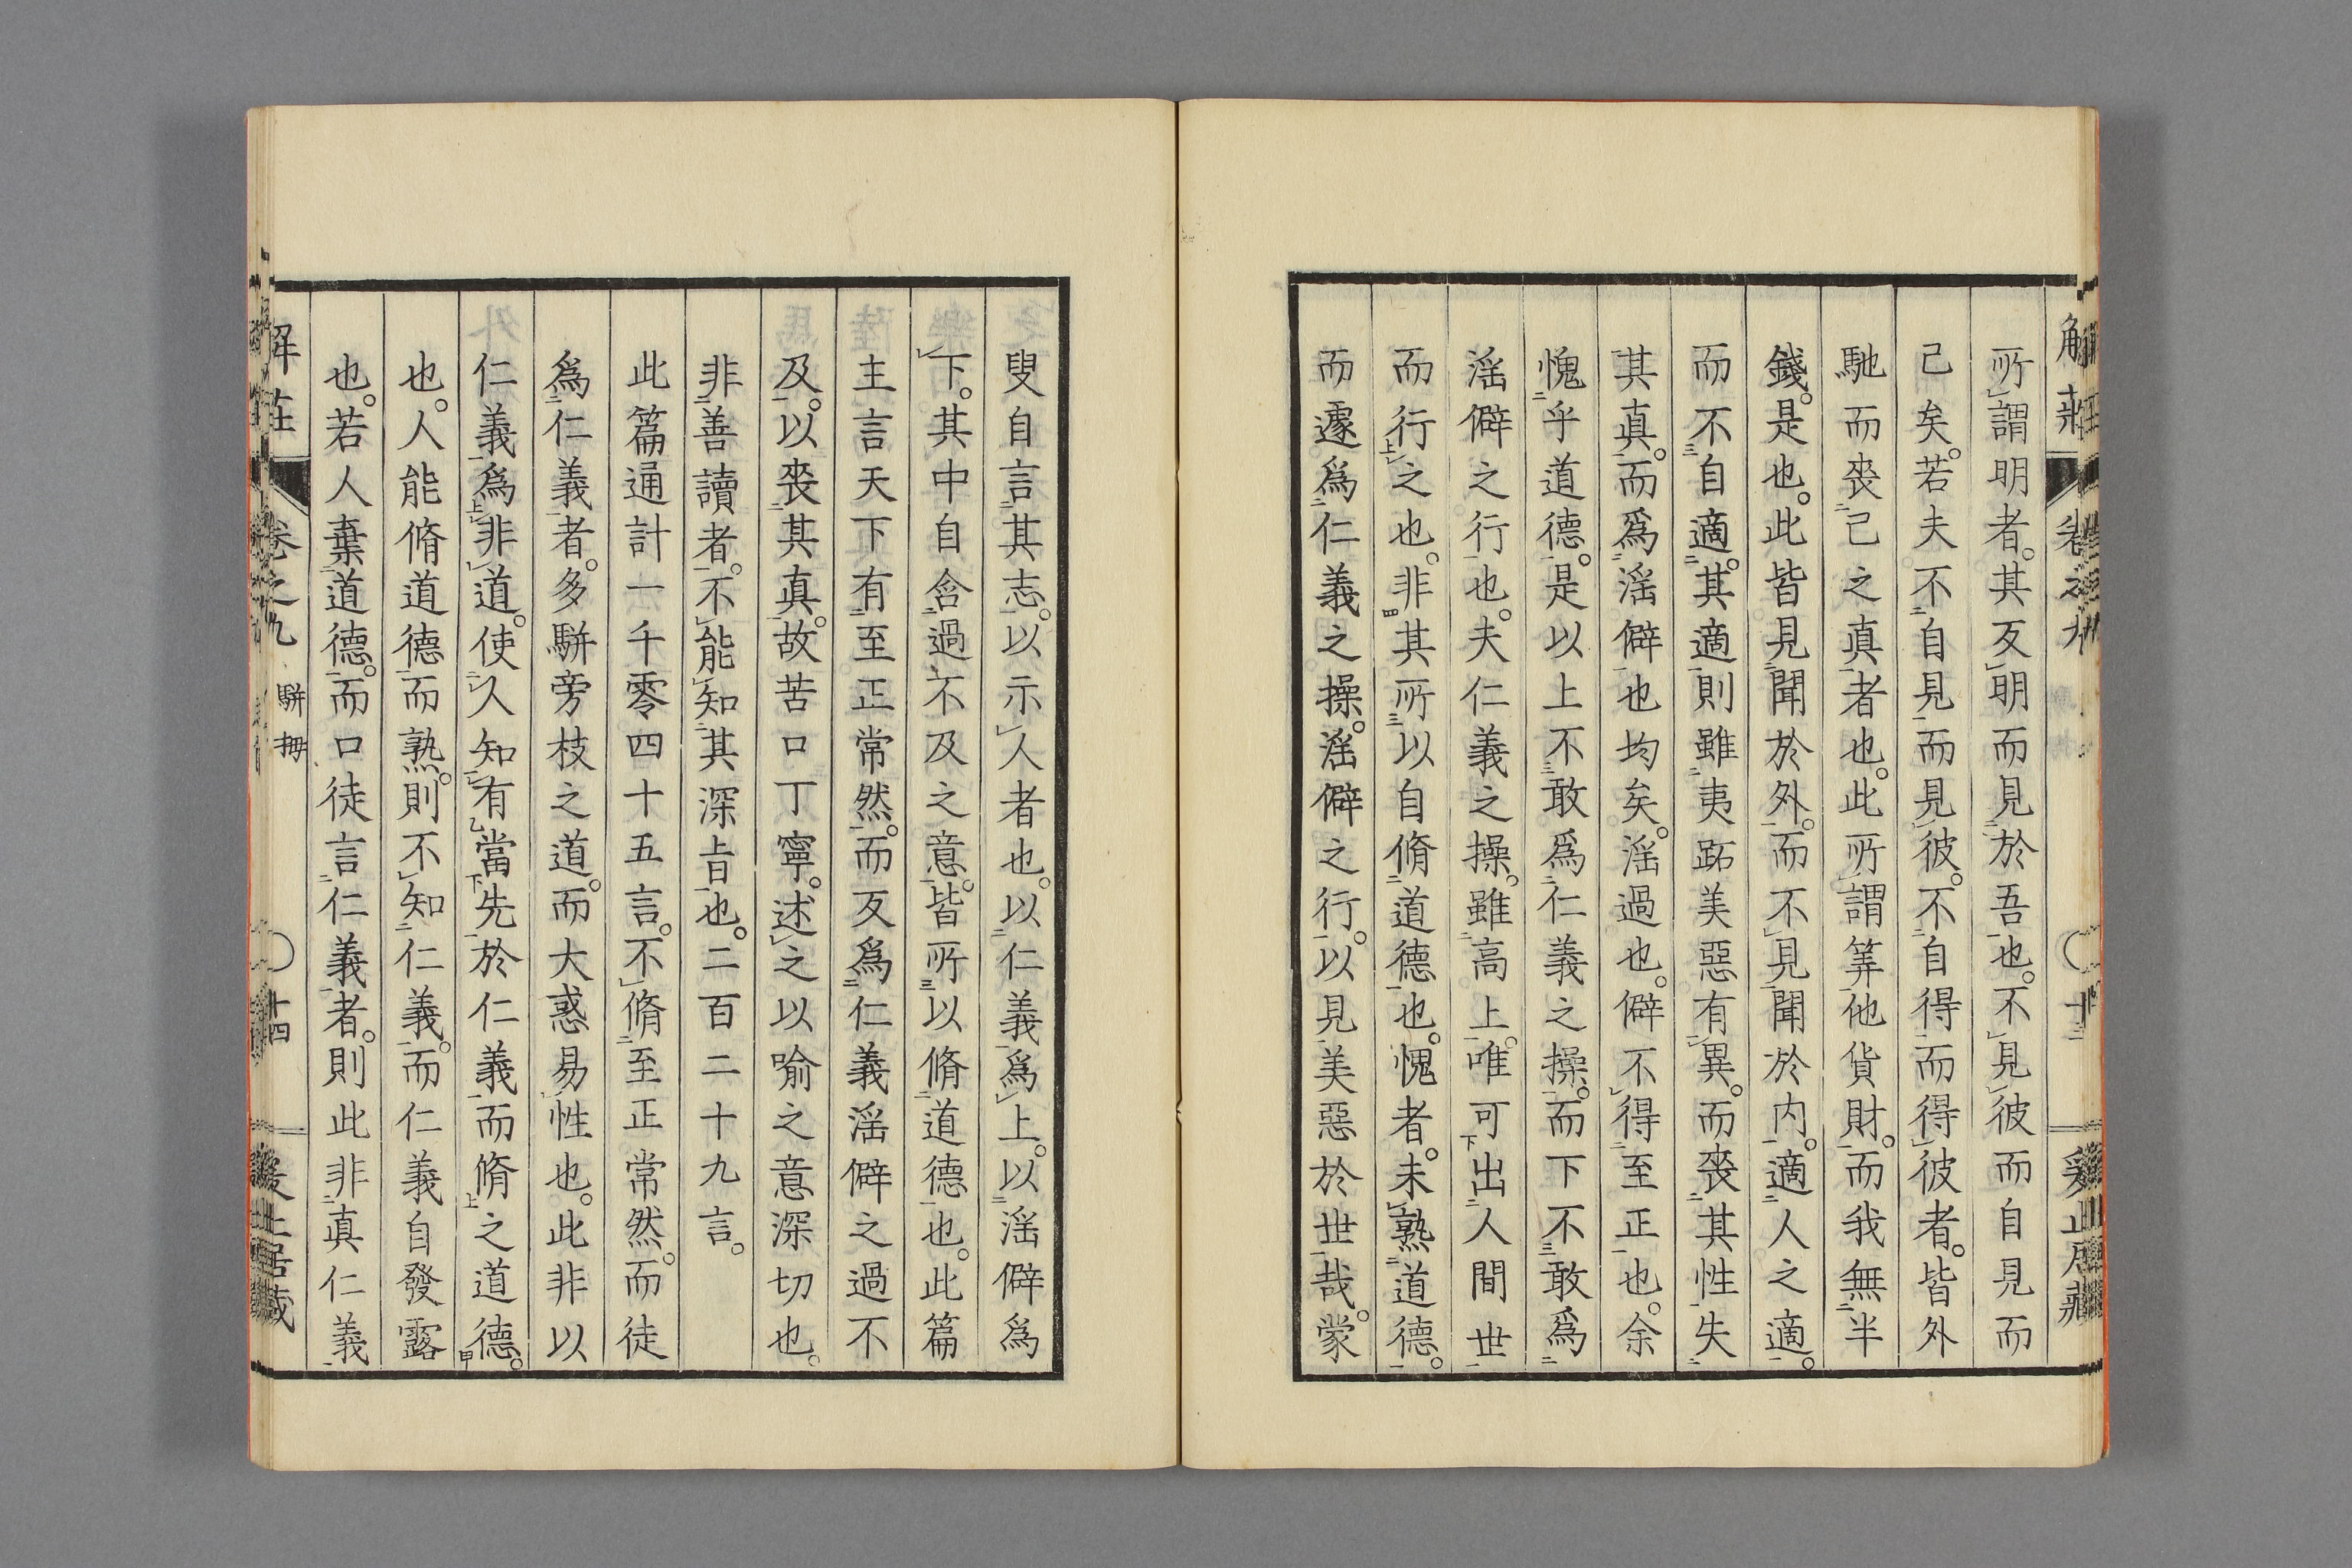 所謂明者。其反明而見於吾也。不見彼而自見而
己矣。若夫不自見而見彼。不自得而得彼者。皆外
馳而喪己之真者也。此所謂筭他貨財。而我無半
錢。是也。此皆見聞於外。而不見聞於内。適人之適。
而不自適。其適則雖夷跖美惡有異。而喪其性失
其真。而爲淫僻也均矣。淫過也。僻不得至正也。余
愧乎道德。是以上不敢爲仁義之操。而下不敢爲
淫僻之行也。夫仁義之操。雖高上。唯可出人間世
而行之也。非其所以自脩道德也。愧者。未熟道德。
而遽爲仁義之操。淫僻之行。以見美惡於世哉。蒙
叟自言其志。以示人者也。以仁義爲上。以淫僻爲
下。其中自含過不及之意。皆所以脩道德也。此篇
主言天下有至正常然。而反爲仁義淫僻之過不
及。以喪其真。故苦口丁寧。述之以喻之意深切也。
非善讀者。不能知其深旨也。二百二十九言。
此篇通計一千零四十五言。不脩至正常然。而徒
爲仁義者。多駢旁枝之道。而大惑易性也。此非以
仁義爲非道。使人知有當先於仁義而脩之道德。
也。人能脩道德而熟。則不知仁義。而仁義自發露
也。若人棄道德。而口徒言仁義者。則此非真仁義
解莊 卷之九 駢拇 十四